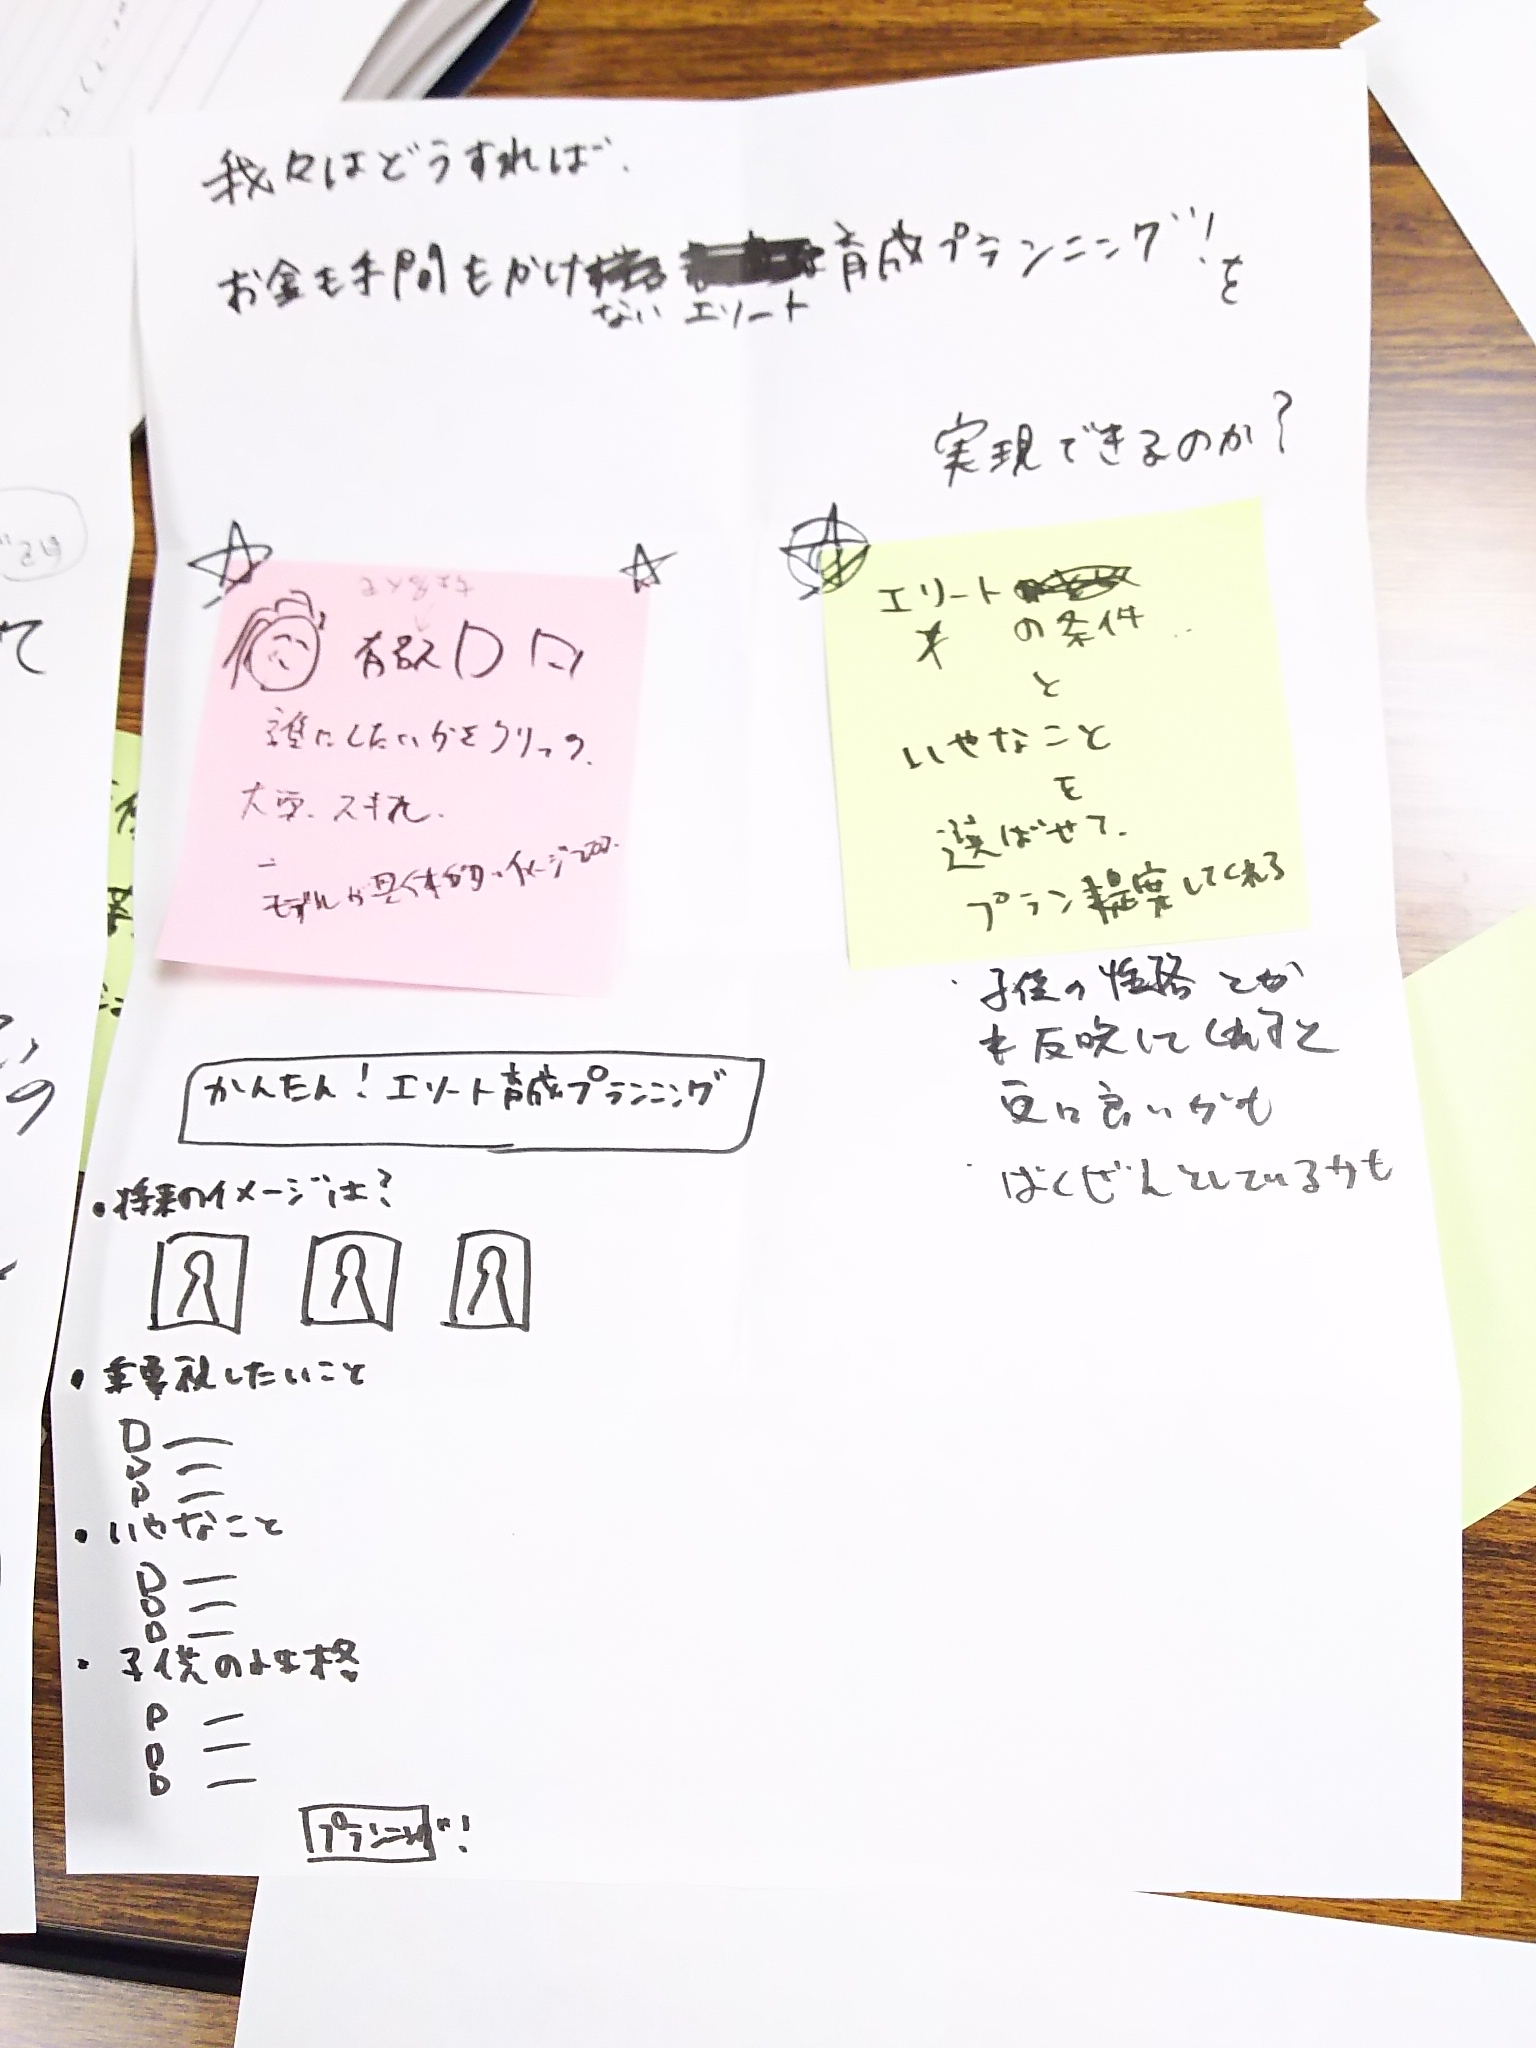 我々はどうすれば、
お金も手間もかけない エリート育成プランニング!を
実現できるのか?
誰にしたいかをクリック.
大卒. スキル.
モデルが具体的イメージ
エリート
の条件
と
いやなこと
を
選ばせて.
プラン提案してくれる
・子供の性格とか
も反映してくれると
更に良いかも
・ばくぜんとしているかも
かんたん!エリート育成プランニング
・将来のイメージは?
・重要視したいこと
・いやなこと
・子供の性格
プランニング!